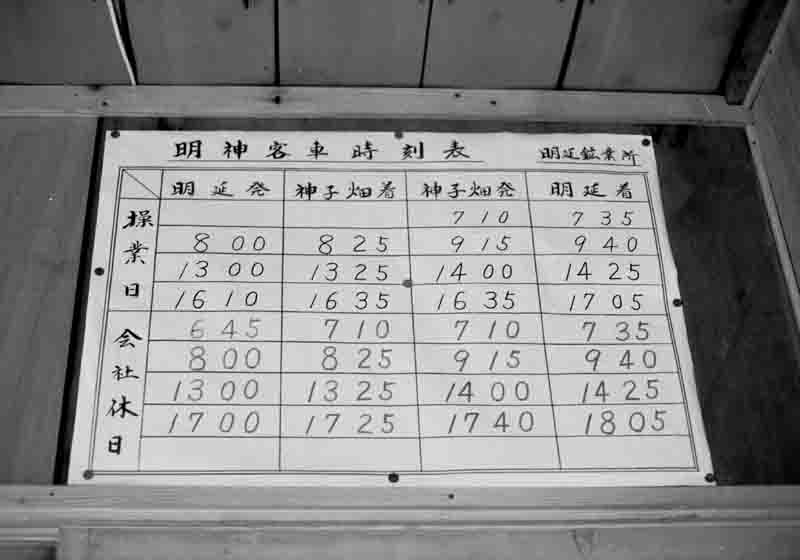 明神客車時刻表 明延鉱業所
明延発 神子畑着 神子畑発 明延着
操業日
710 735
800 825 915 940
1300 1325 1400 1425
1610 1635 1635 1705
会社休日
645 710 710 735
800 825 915 940
1300 1325 1400 1425
1700 1725 1740 1805